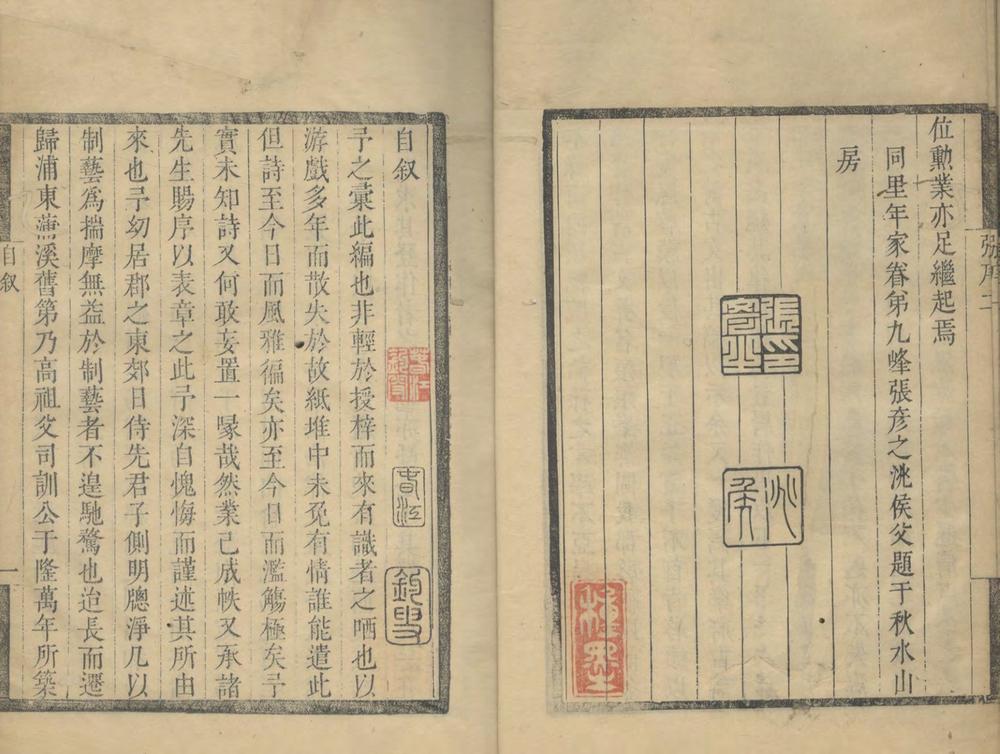 位勳業亦足繼起焉
同里年家眷弟九峰張彦之洮侯父題于秋水山
房
洮侯
自叙
予之彙此編也非輕於授梓而來有識者之哂也以
游戲多年而散失於故紙堆中未免有情誰能遣此
但詩至今日而風雅徧矣亦至今日而濫觴極矣予
實未知詩又何敢妄置一喙哉然業已成帙又承諸
先生賜序以表章之此予深自愧悔而謹述其所由
來也予幼居郡之東郊日侍先君子側明牕淨几以
制藝爲揣摩無益於制藝者不遑馳騖也迨長而遷
歸浦東蕭溪舊第乃高祖父司訓公于隆萬年所築
春江
釣叟
自叙
一